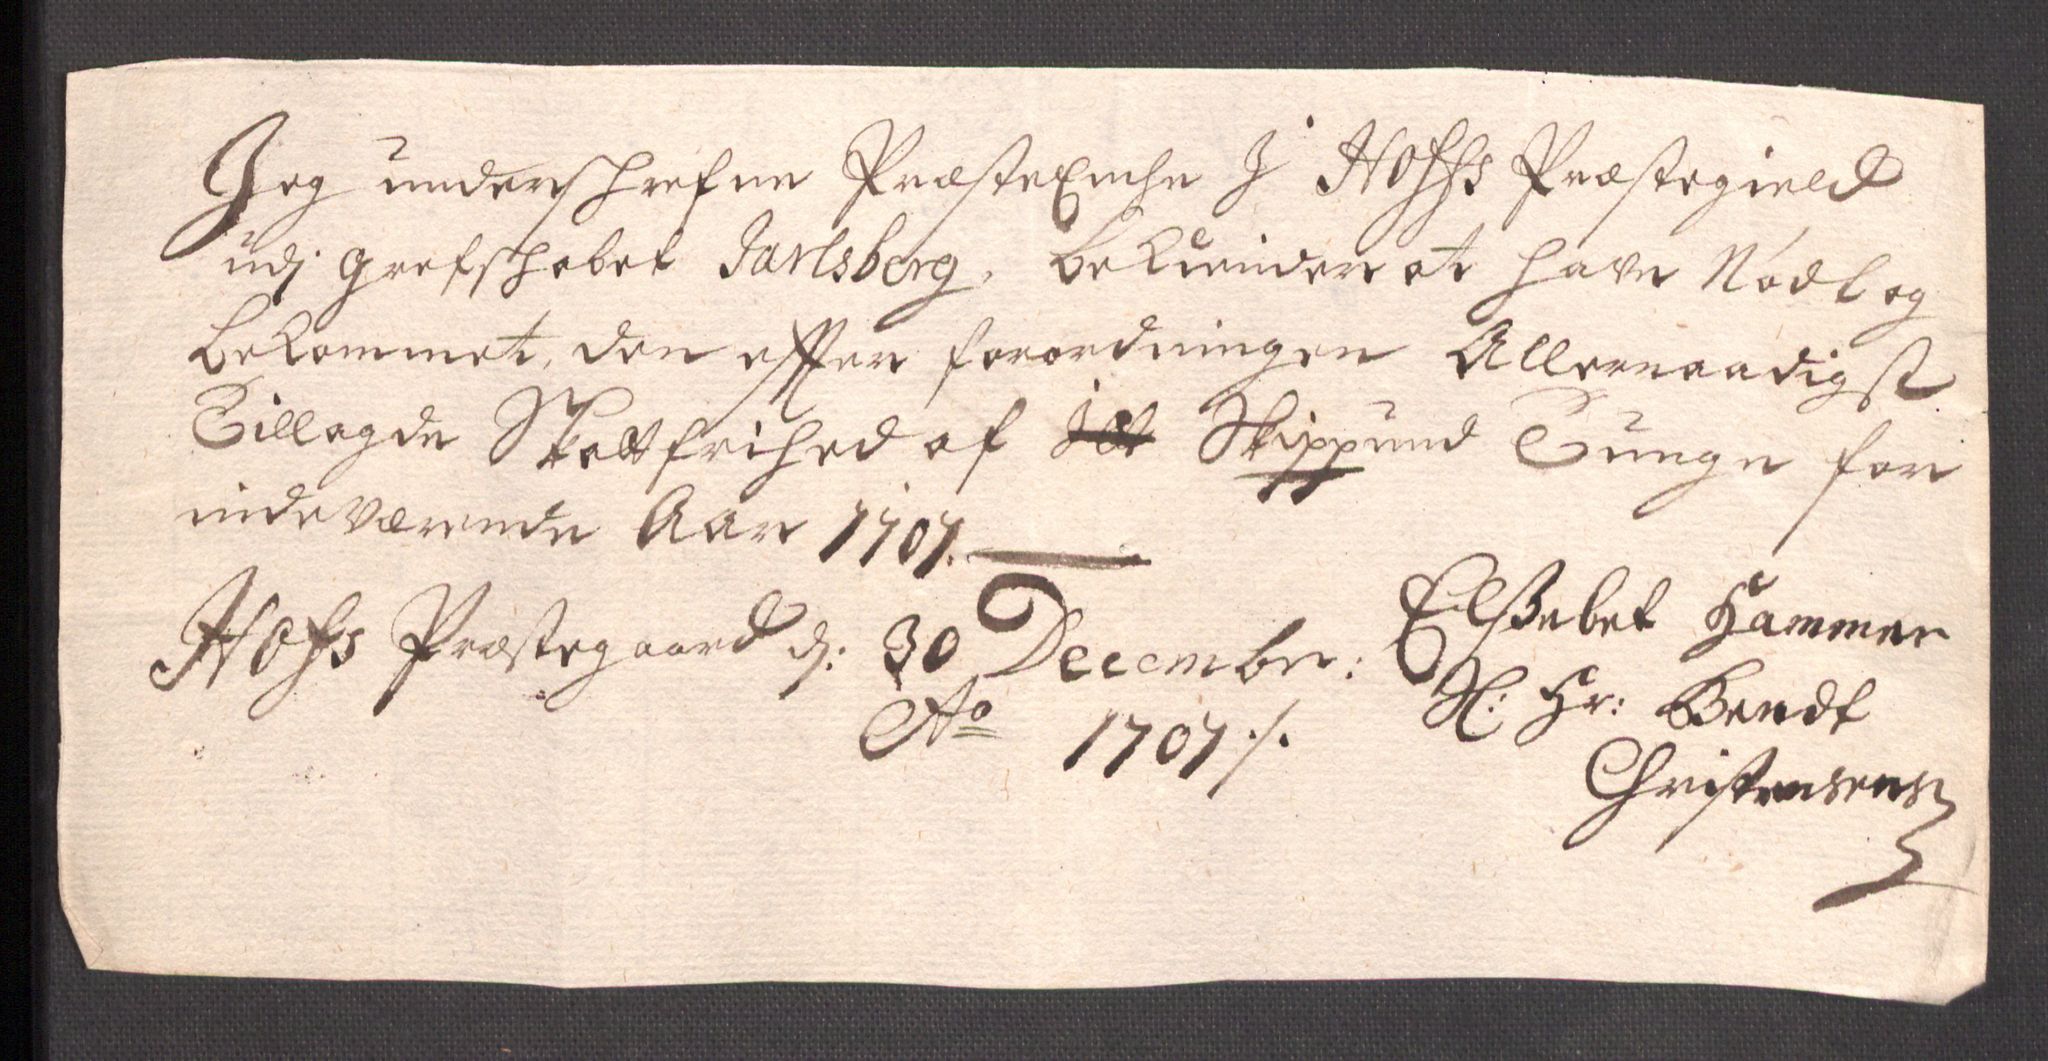 Jeg underschrefne PræsteEncke J Hoffs Præstegield
udj grefschabet Jarlsberg, bekiender at have Nødt og
bekommet, den effter forordningen Allernaadigst
Tillagde Skattfrihed af Skippund Tunge for
indeværende Aar 1707.
Hofs Præstegaard d: 30 December: Elssebet Hammer
Ao 1707 ./. Hr: Bendt
Christensens